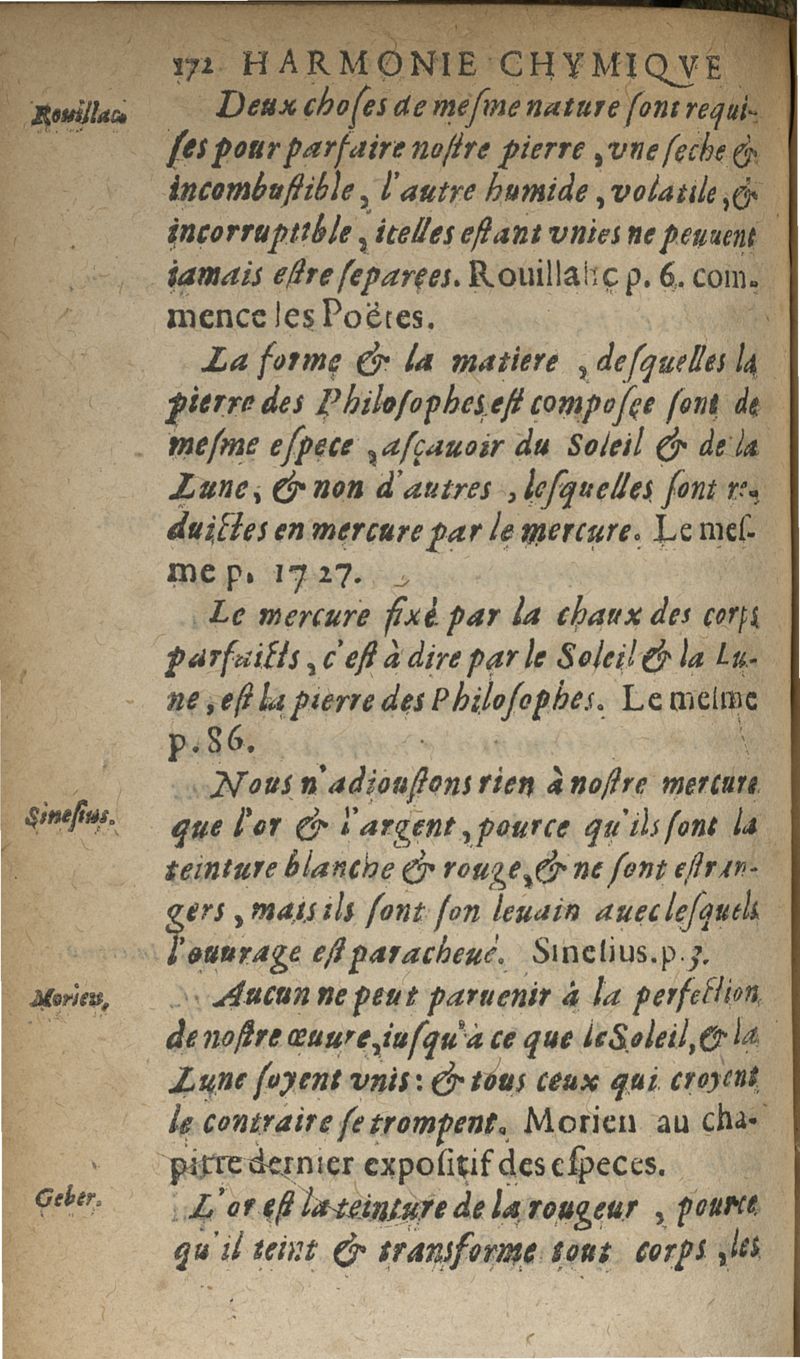 172 HARMONIE CHYMIQVE
Rouillac.
Deux choſes de meſme nature ſont requi-
ſes pour parfaire noſtre pierre, vne ſeche &
incombuſtible, l'autre humide, volatile, &
incorruptible, icelles eſtant vnies ne peuuent
iamais eſtre ſeparees. Rouillahc p. 6. com-
mence les Poëtes.
La forme & la matiere, deſquelles la
pierre des Philoſophes eſt compoſee ſont de
meſme eſpece, aſçauoir du Soleil & de la
Lune, & non d'autres, leſquelles ſont re-
duictes en mercure par le mercure. Le meſ-
me p. 17 27.
Le mercure fixé par la chaux des corps
parfaicts, c'eſt à dire par le Soleil & la Lu-
ne, eſt la pierre des Philoſophes. Le meſme
p. 86.
Sineſius.
Nous n'adiouſtons rien à noſtre mercure
que l'or & l'argent, pource qu'ils ſont la
teinture blanche & rouge, & ne ſont eſtran-
gers, mais ils ſont ſon leuain auec leſquels
l'ouurage eſt paracheué. Sineſius. p. 3.
Morien.
Aucun ne peut paruenir à la perfection
de noſtre œuure, iuſqu'à ce que le Soleil, & la
Lune ſoyent vnis: & tous ceux qui croyent
le contraire ſe trompent. Morien au cha-
pitre dernier expoſitif des eſpeces.
Geber.
L'or eſt la teinture de la rougeur, pource
qu'il teint & transforme tout corps, les